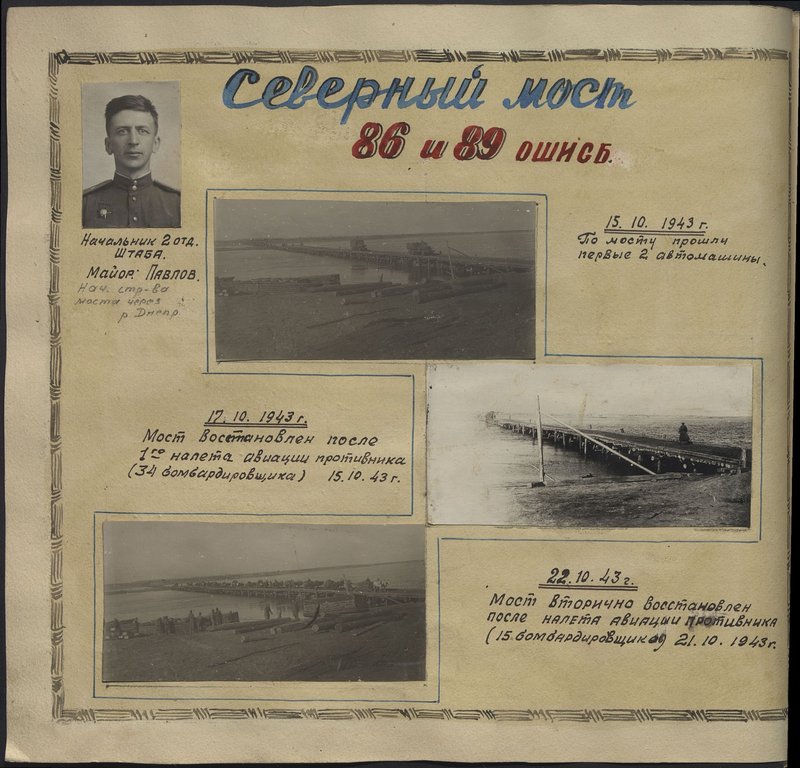 Северный мост
86 и 89 ОШИСБ.
Начальник 2 отд.
ШТАБА.
Майор: ПАВЛОВ.
Нач. стр-ва
моста через
р. Днепр
15. 10. 1943 г.
По мосту прошли
первые 2 автомашины.
17. 10. 1943 г.
Мост восстановлен после
1го налета авиации противника
(34 бомбардировщика) 15. 10. 43 г.
22. 10. 43 г.
Мост вторично восстановлен
после налета авиации противника
(15 бомбардировщика) 21. 10. 1943 г.